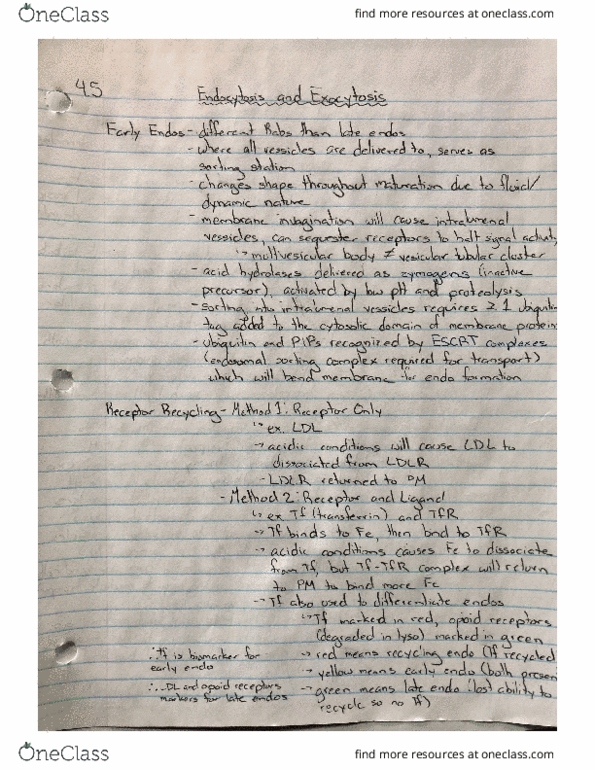 OneClass
find more resources at oneclass.com
45
Endocytosis and Exocytosis
Early Endos - different Rabs than late endos
- where all vessicles are delivered to, serves as
sorting station
- changes shape throughout maturation due to fluid/
dynamic nature
- membrane invagination will cause intralumenal
vessicles, can sequester receptors to halt signal activity
↳ multivesicular body ≠ vesicular tubular cluster
- acid hydrolases delivered as zymogens (inactive
precursor), activated by low pH and proteolysis
- sorting into intralumenal vessicles requires ≥ 1 ubiquitin
tag added to the cytosolic domain of membrane proteins
- ubiquitin and PIPs recognized by ESCRT complexes
(endosomal sorting complex required for transport)
which will bend membrane for endo formation
Receptor Recycling - Method 1: Receptor Only
↳ ex. LDL
→ acidic conditions will cause LDL to
dissociated from LDLR
- LDLR returned to PM
- Method 2: Receptor and Ligand
↳ ex Tf (transferrin) and TfR
→ Tf binds to Fe, then bind to TfR
→ acidic conditions causes Fe to dissociate
from Tf, but Tf-TfR complex will return
to PM to bind more Fe
→ Tf also used to differentiate endos
↳ Tf marked in red, opoid receptors
(degraded in lyso) marked in green
∴ Tf is biomarker for
early endo
→ red means recycling endo (Tf recycled)
→ yellow means early endo (both present
∴ LDL and opoid receptors
markers for late endos
→ green means late endo (lost ability to
recycle so no Tf)
OneClass
find more resources at oneclass.com